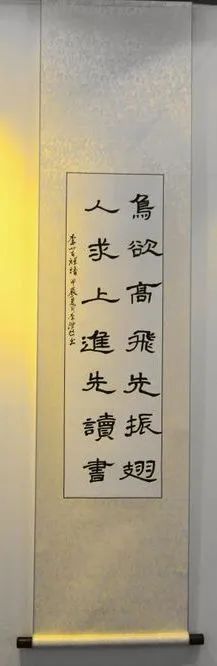 鳥欲高飛先振翅
人求上進先讀書